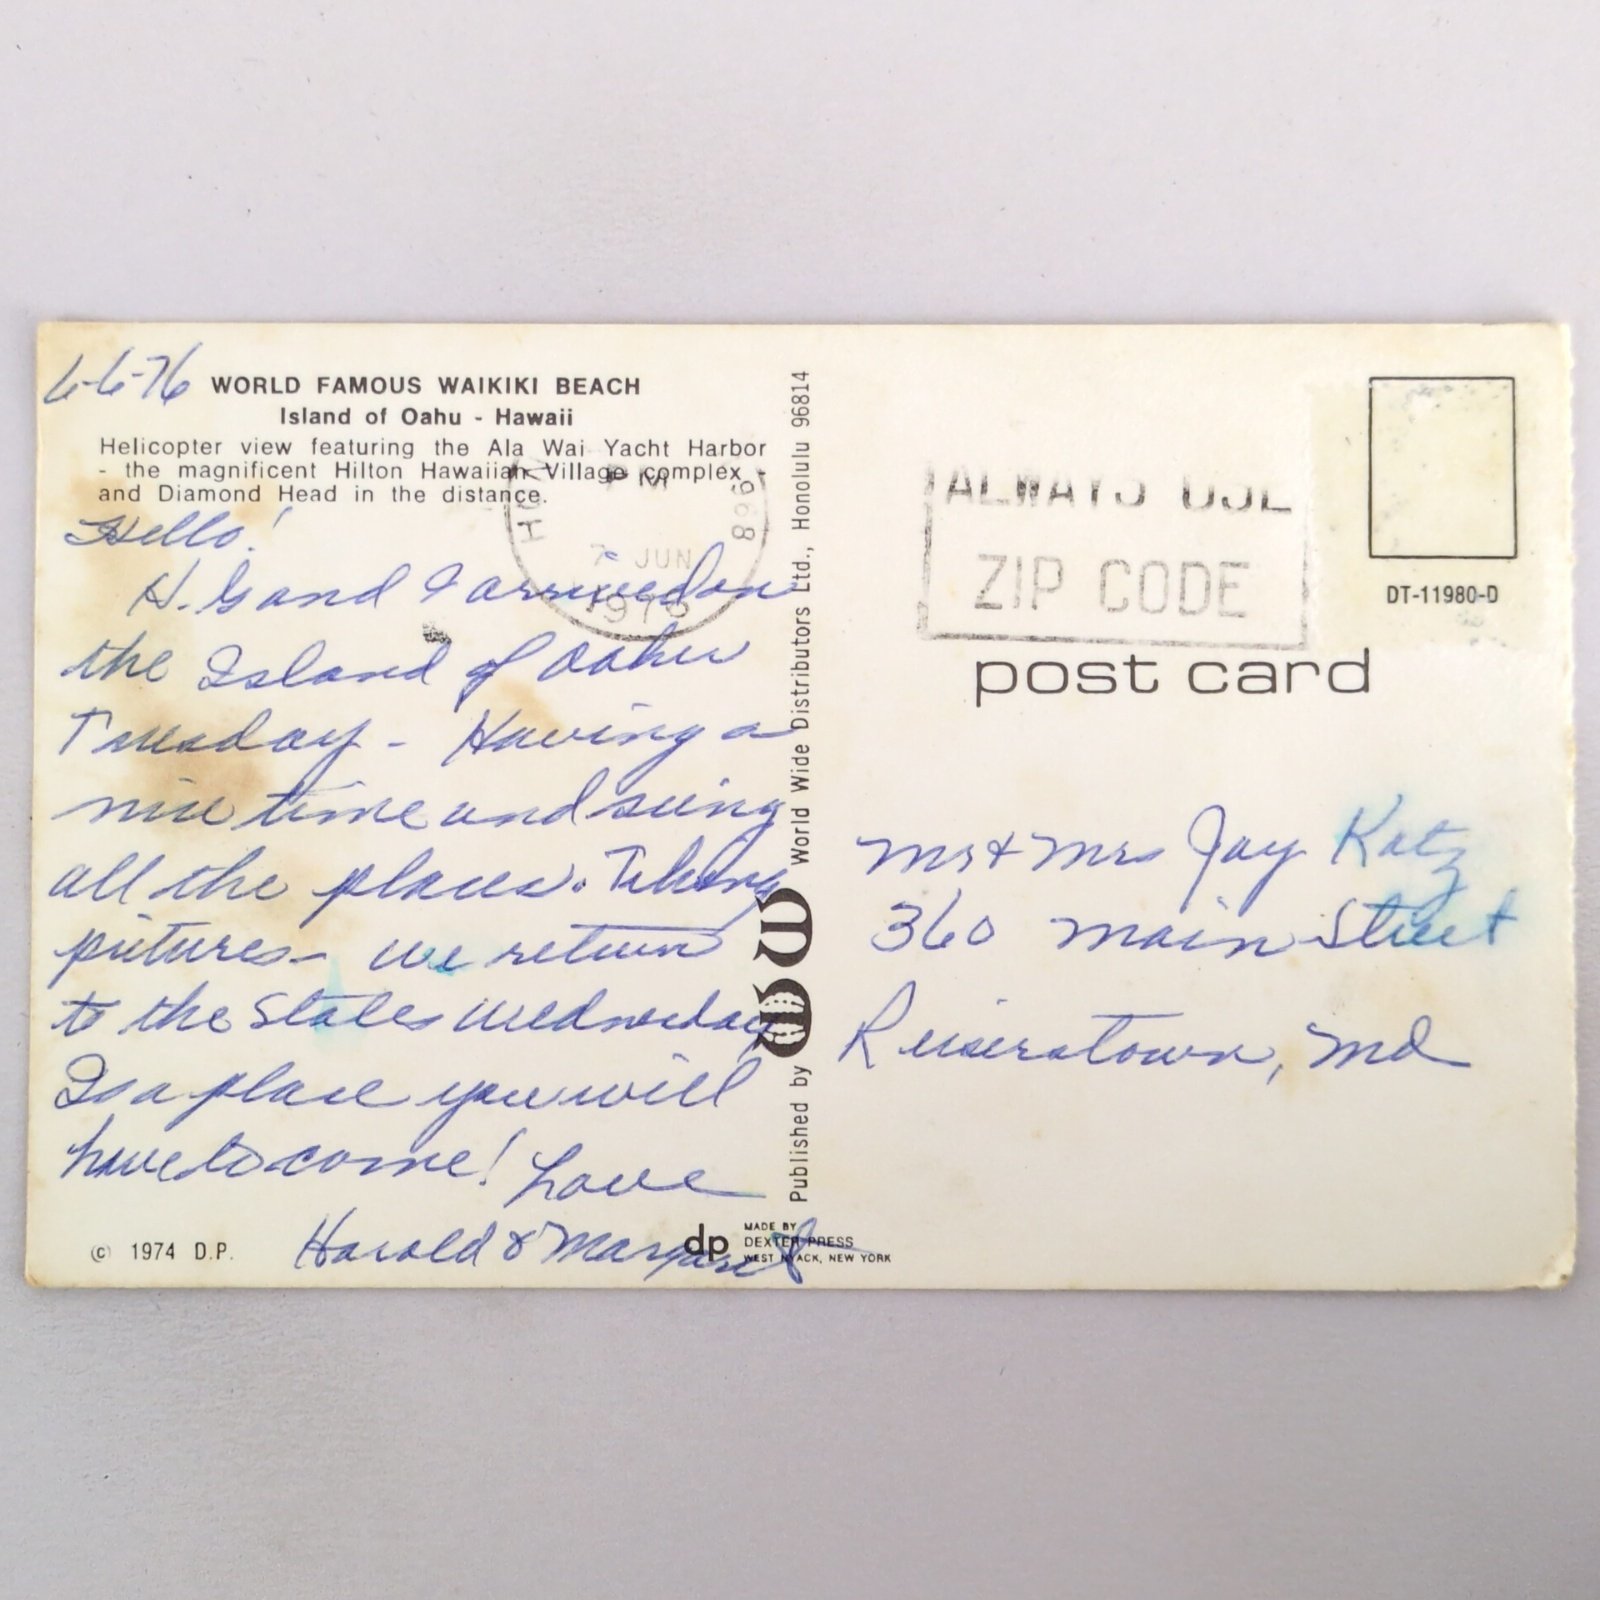 6-6-76 WORLD FAMOUS WAIKIKI BEACH
Island of Oahu - Hawaii
Helicopter view featuring the Ala Wai Yacht Harbor
- the magnificent Hilton Hawaiian Village complex -
and Diamond Head in the distance.
Hello!
H. G and I arrived on
the Island of Oahu
Tuesday - Having a
nice time and seeing
all the places. Taking
pictures - we return
to the States Wednesday
Is a place you will
have to come! Love
Harold & Margaret
© 1974 D.P.
dp MADE BY
DEXTER PRESS
WEST NYACK, NEW YORK
PM
968
7 JUN
1976
Published by WW World Wide Distributors Ltd., Honolulu 96814
ALWAYS USE
ZIP CODE
DT-11980-D
post card
Mr & Mrs Jay Katz
360 Main Street
Reisterstown, Md